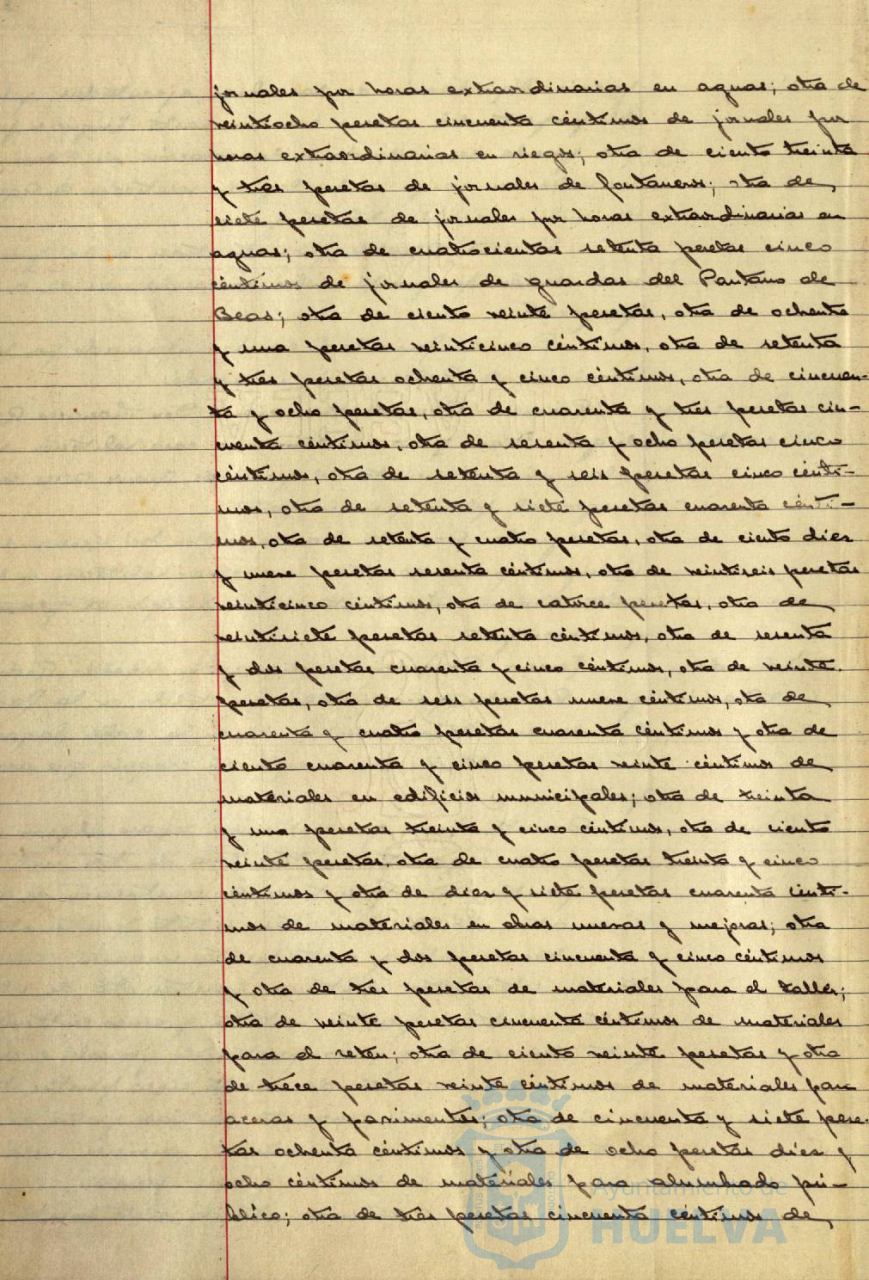 jornales por horas extraordinarias en aguas; otra de
veintiocho pesetas cincuenta céntimos de jornales por
horas extraordinarias en riegos; otra de ciento treinta
y tres pesetas de jornales de fontaneros; otra de
siete pesetas de jornales por horas extraordinarias en
aguas; otra de cuatrocientas setenta pesetas cinco
céntimos de jornales de guardas del Pantano de
Beas; otra de ciento veinte pesetas, otra de ochenta
y una pesetas veinticinco céntimos, otra de setenta
y tres pesetas ochenta y cinco céntimos, otra de cincuen-
ta y ocho pesetas, otra de cuarenta y tres pesetas cin-
cuenta céntimos, otra de sesenta y ocho pesetas cinco
céntimos, otra de setenta y seis pesetas cinco cénti-
mos, otra de setenta y siete pesetas cuarenta cénti-
mos, otra de setenta y cuatro pesetas, otra de ciento diez
y nueve pesetas sesenta céntimos, otra de veintiseis pesetas
veinticinco céntimos, otra de catorce pesetas, otra de
veintisiete pesetas setenta céntimos, otra de sesenta
y dos pesetas cuarenta y cinco céntimos, otra de veinte
pesetas, otra de seis pesetas nueve céntimos, otra de
cuarenta y cuatro pesetas cuarenta céntimos y otra de
ciento cuarenta y cinco pesetas veinte céntimos de
materiales en edificios municipales; otra de treinta
y una pesetas treinta y cinco céntimos, otra de ciento
veinte pesetas, otra de cuatro pesetas treinta y cinco
céntimos y otra de diez y siete pesetas cuarenta cénti-
mos de materiales en obras nuevas y mejoras; otra
de cuarenta y dos pesetas cincuenta y cinco céntimos
y otra de tres pesetas de materiales para el taller;
otra de veinte pesetas cincuenta céntimos de materiales
para el reten; otra de ciento veinte pesetas y otra
de trece pesetas veinte céntimos de materiales para
aceras y pavimentos; otra de cincuenta y siete pese-
tas ochenta céntimos y otra de ocho pesetas diez y
ocho céntimos de materiales para alumbrado pú-
blico; otra de tres pesetas cincuenta céntimos de
Ayuntamiento de
HUELVA